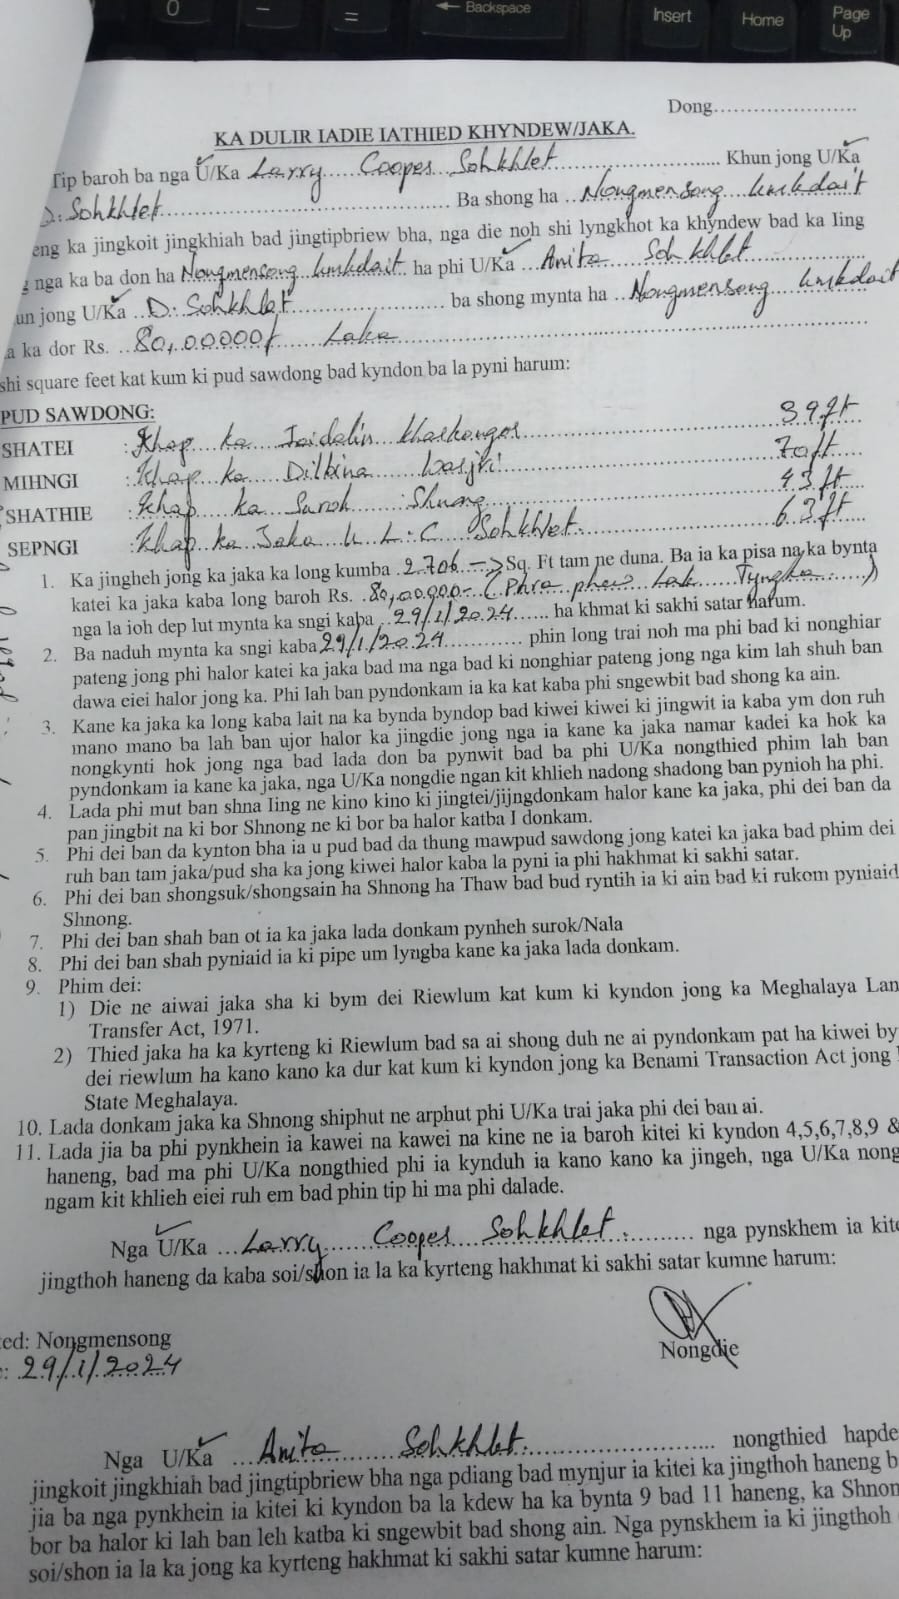 0 - = ← Backspace Insert Home Page Up
Dong........................
KA DULIR IADIE IATHIED KHYNDEW/JAKA.
Tip baroh ba nga U/Ka Larry Cooper Sohkhlet ........................ Khun jong U/Ka
D. Sohkhlet ........................ Ba shong ha Nongmensong
eng ka jingkoit jingkhiah bad jingtipbriew bha, nga die noh shi lyngkhot ka khyndew bad ka Iing
nga ka ba don ha Nongmensong ha phi U/Ka Anita Sohkhlet
un jong U/Ka D. Sohkhlet ........................ ba shong mynta ha Nongmensong
a ka dor Rs. 80,00000/ Laka
shi square feet kat kum ki pud sawdong bad kyndon ba la pyni harum:
PUD SAWDONG:
SHATEI : Khap ka 39ft
MIHNGI : Khap ka Dilbina 70ft
SHATHIE : Khap ka Surok Shnong 43ft
SEPNGI : Khap ka Jaka U L. C Sohkhlet 63ft
1. Ka jingheh jong ka jaka ka long kumba 2706 Sq. Ft tam ne duna. Ba ia ka pisa na ka bynta
katei ka jaka kaba long baroh Rs. 80,00000 (Phra phew Lak Tyngka )
nga la ioh dep lut mynta ka sngi kaba 29/1/2024 ha khmat ki sakhi satar harum.
2. Ba naduh mynta ka sngi kaba 29/1/2024 phin long trai noh ma phi bad ki nonghiar
pateng jong phi halor katei ka jaka bad ma nga bad ki nonghiar pateng jong nga kim lah shuh ban
dawa eiei halor jong ka. Phi lah ban pyndonkam ia ka kat kaba phi sngewbit bad shong ka ain.
3. Kane ka jaka ka long kaba lait na ka bynda byndop bad kiwei kiwei ki jingwit ia kaba ym don ruh
mano mano ba lah ban ujor halor ka jingdie jong nga ia kane ka jaka namar kadei ka hok ka
nongkynti hok jong nga bad lada don ba pynwit bad ba phi U/Ka nongthied phim lah ban
pyndonkam ia kane ka jaka, nga U/Ka nongdie ngan kit khlieh nadong shadong ban pynioh ha phi.
4. Lada phi mut ban shna Iing ne kino kino ki jingtei/jijngdonkam halor kane ka jaka, phi dei ban da
pan jingbit na ki bor Shnong ne ki bor ba halor katba I donkam.
5. Phi dei ban da kynton bha ia u pud bad da thung mawpud sawdong jong katei ka jaka bad phim dei
ruh ban tam jaka/pud sha ka jong kiwei halor kaba la pyni ia phi hakhmat ki sakhi satar.
6. Phi dei ban shongsuk/shongsain ha Shnong ha Thaw bad bud ryntih ia ki ain bad ki rukom pyniaid
Shnong.
7. Phi dei ban shah ban ot ia ka jaka lada donkam pynheh surok/Nala
8. Phi dei ban shah pyniaid ia ki pipe um lyngba kane ka jaka lada donkam.
9. Phim dei:
1) Die ne aiwai jaka sha ki bym dei Riewlum kat kum ki kyndon jong ka Meghalaya Lan
Transfer Act, 1971.
2) Thied jaka ha ka kyrteng ki Riewlum bad sa ai shong duh ne ai pyndonkam pat ha kiwei by
dei riewlum ha kano kano ka dur kat kum ki kyndon jong ka Benami Transaction Act jong
State Meghalaya.
10. Lada donkam jaka ka Shnong shiphut ne arphut phi U/Ka trai jaka phi dei ban ai.
11. Lada jia ba phi pynkhein ia kawei na kawei na kine ne ia baroh kitei ki kyndon 4,5,6,7,8,9 &
haneng, bad ma phi U/Ka nongthied phi ia kynduh ia kano kano ka jingeh, nga U/Ka nong
ngam kit khlieh eiei ruh em bad phin tip hi ma phi dalade.
Nga U/Ka Larry Cooper Sohkhlet ............ nga pynskhem ia kite
jingthoh haneng da kaba soi/shon ia la ka kyrteng hakhmat ki sakhi satar kumne harum:
ted: Nongmensong
: 29/1/2024
Nongdie
Nga U/Ka Anita Sohkhlet ........................ nongthied hapde
jingkoit jingkhiah bad jingtipbriew bha nga pdiang bad mynjur ia kitei ka jingthoh haneng b
jia ba nga pynkhein ia kitei ki kyndon ba la kdew ha ka bynta 9 bad 11 haneng, ka Shnon
bor ba halor ki lah ban leh katba ki sngewbit bad shong ain. Nga pynskhem ia ki jingthoh
soi/shon ia la ka jong ka kyrteng hakhmat ki sakhi satar kumne harum: